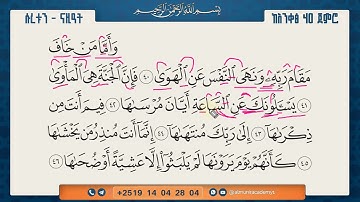 ሱረቱን - ናዚዓት
بِسْمِ اللَّهِ الرَّحْمَٰنِ الرَّحِيمِ
ከአንቀፅ 40 ጀምሮ
وَأَمَّا مَنْ خَافَ
مَقَامَ رَبِّهِ وَنَهَى النَّفْسَ عَنِ الْهَوَىٰ ٤٠ فَإِنَّ الْجَنَّةَ هِيَ الْمَأْوَىٰ
٤١ يَسْأَلُونَكَ عَنِ السَّاعَةِ أَيَّانَ مُرْسَاهَا ٤٢ فِيمَ أَنتَ مِن
ذِكْرَاهَا ٤٣ إِلَىٰ رَبِّكَ مُنتَهَاهَا ٤٤ إِنَّمَا أَنتَ مُنذِرُ مَن يَخْشَاهَا
٤٥ كَأَنَّهُمْ يَوْمَ يَرَوْنَهَا لَمْ يَلْبَثُوا إِلَّا عَشِيَّةً أَوْ ضُحَاهَا ٤٦
+2519 14 04 28 04